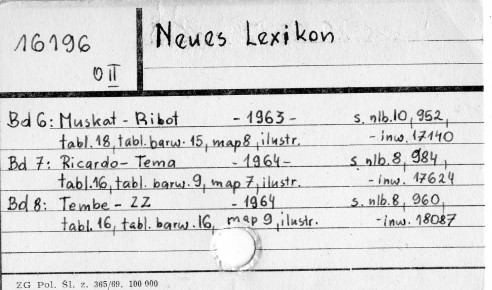 16196
0 II
Neues Lexikon
Bd 6: Muskat - Ribot - 1963 - s. nlb. 10, 952,
tabl. 18, tabl. barw. 15, map 8, ilustr. - inw. 17140
Bd 7: Ricardo - Tema - 1964 - s. nlb. 8, 984,
tabl. 16, tabl. barw. 9, map 7, ilustr. - inw. 17624
Bd 8: Tembe - ZZ - 1964 s. nlb. 8, 960,
tabl. 16, tabl. barw. 16, map 9, ilustr. - inw. 18087
ZG Pol. Śl. z. 365/69. 100 000